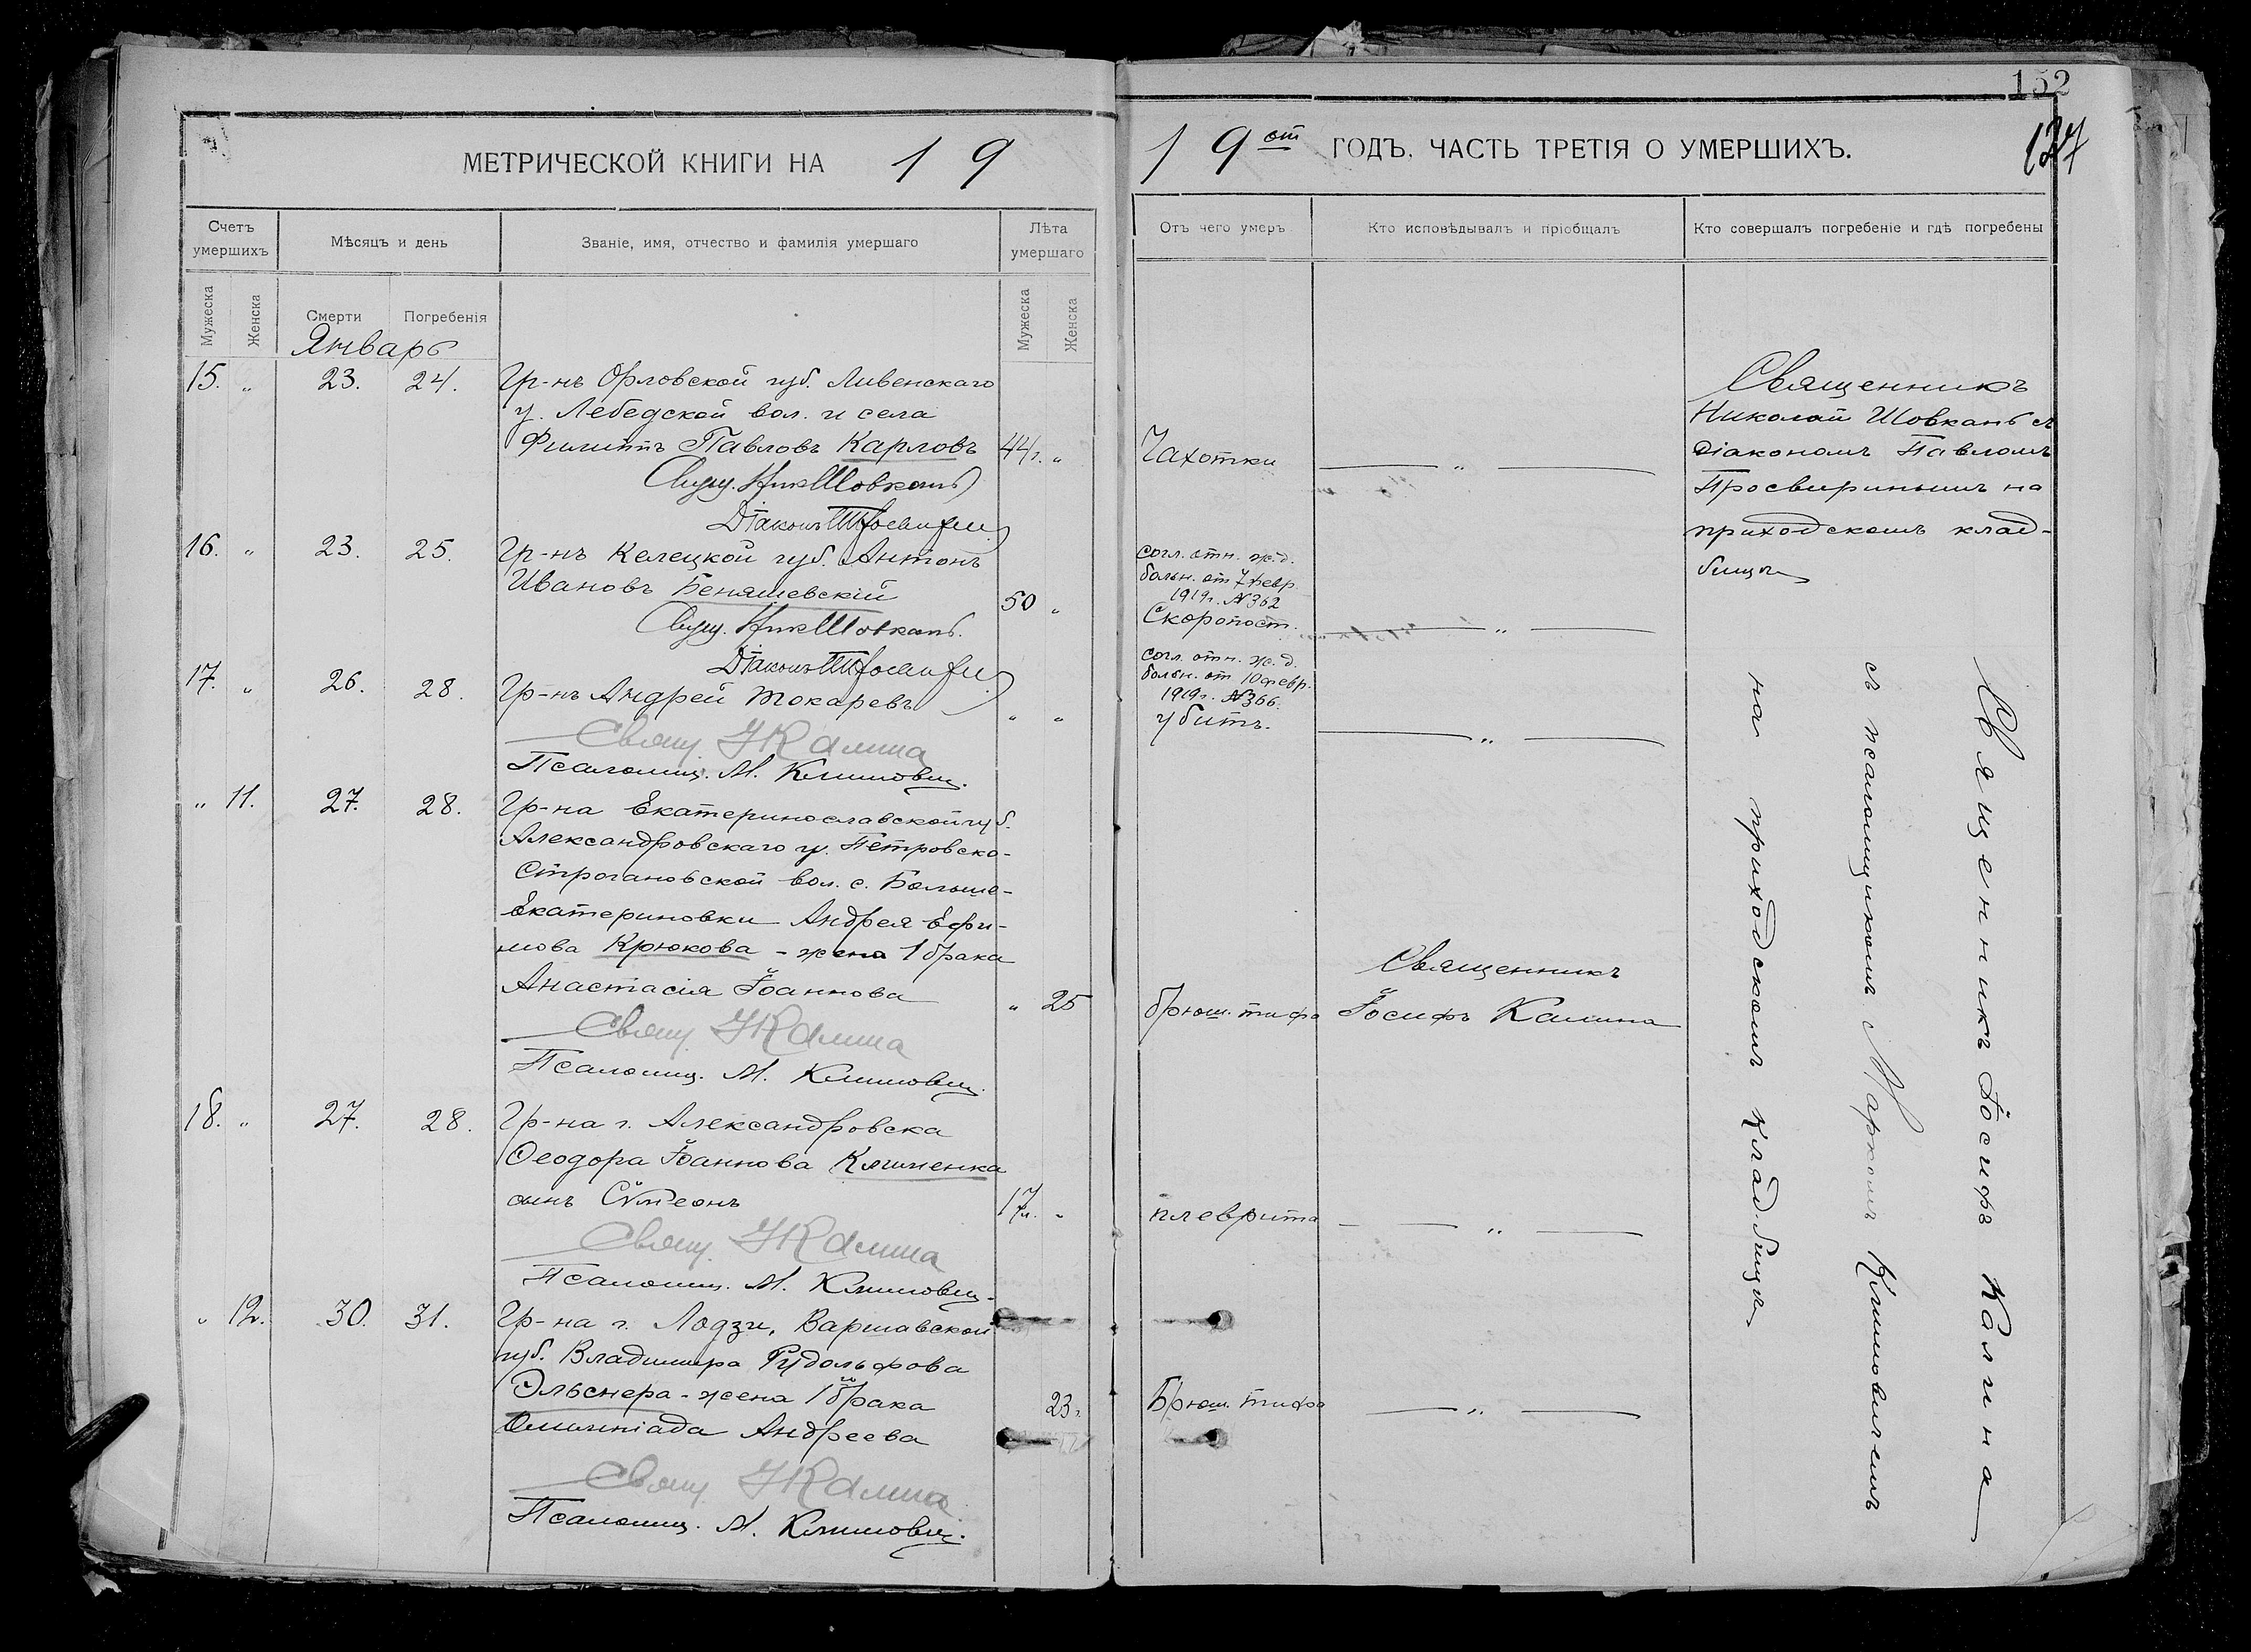 152
127
МЕТРИЧЕСКОЙ КНИГИ НА 19
19 ый ГОДЪ, ЧАСТЬ ТРЕТІЯ О УМЕРШИХЪ.
Счетъ умершихъ
Мѣсяцъ и день
Званіе, имя, отчество и фамилія умершаго
Лѣта умершаго
Отъ чего умеръ
Кто исповѣдывалъ и пріобщалъ
Кто совершалъ погребеніе и гдѣ погребены
Мужеска
Женска
Смерти
Погребенія
Мужеска
Женска
Январь
15. „ 23. 24. Гр-нъ Орловской губ. Ливенскаго
у. Лебедской вол. и села
Филиппъ Павловъ Карловъ 44 г. „ Чахотки — „ —
Свящ. Ник Шовкань
Діаконъ
Священникъ
Николай Шовкань съ
діакономъ Павломъ
Просвиринымъ на
приходскомъ клад-
бищѣ
16. „ 23. 25. Гр-нъ Келецкой губ. Антонъ
Ивановъ Беняшевскій 50 „
Свящ. Ник Шовкань.
Діаконъ
согл. отн. ж.д.
больн. от 7 февр.
1919 г. № 362
Скоропост. — „ —
17. „ 26. 28. Гр-нъ Андрей Токаревъ „ „
Свящ. І Калина
Псаломщ. М. Климович.
согл. отн. ж.д.
больн. от 10 февр.
1919 г. № 366.
убитъ. — „ —
„ 11. 27. 28. Гр-на Екатеринославской губ.
Александровскаго у. Петровско-
Строгановской вол. с. Больше-
Екатериновки Андрея Ефи-
мова Крюкова - жена 1 брака
Анастасія Іоаннова „ 25
брюш. тифа
Священникъ
Іосифъ Калина
Свящ. І Калина
Псаломщ. М. Климович.
18. „ 27. 28. Гр-на г. Александровска
Ѳеодора Іоаннова Клименка
сынъ Сѵмеонъ 17 л. „ плеврита — „ —
Свящ. І Калина
Псаломщ. М. Климович.
„ 12. 30. 31. Гр-на г. Лодзи, Варшавской
губ. Владимира Рудольфова
Эльснера - жена 1го брака 23 г. Брюш. тифа — „ —
Олимпіада Андреева
Свящ. І Калина
Псаломщ. М. Климович.
Священникъ Іосифъ Калина
съ псаломщикомъ Маркомъ Климовичемъ
на приходскомъ кладбищѣ